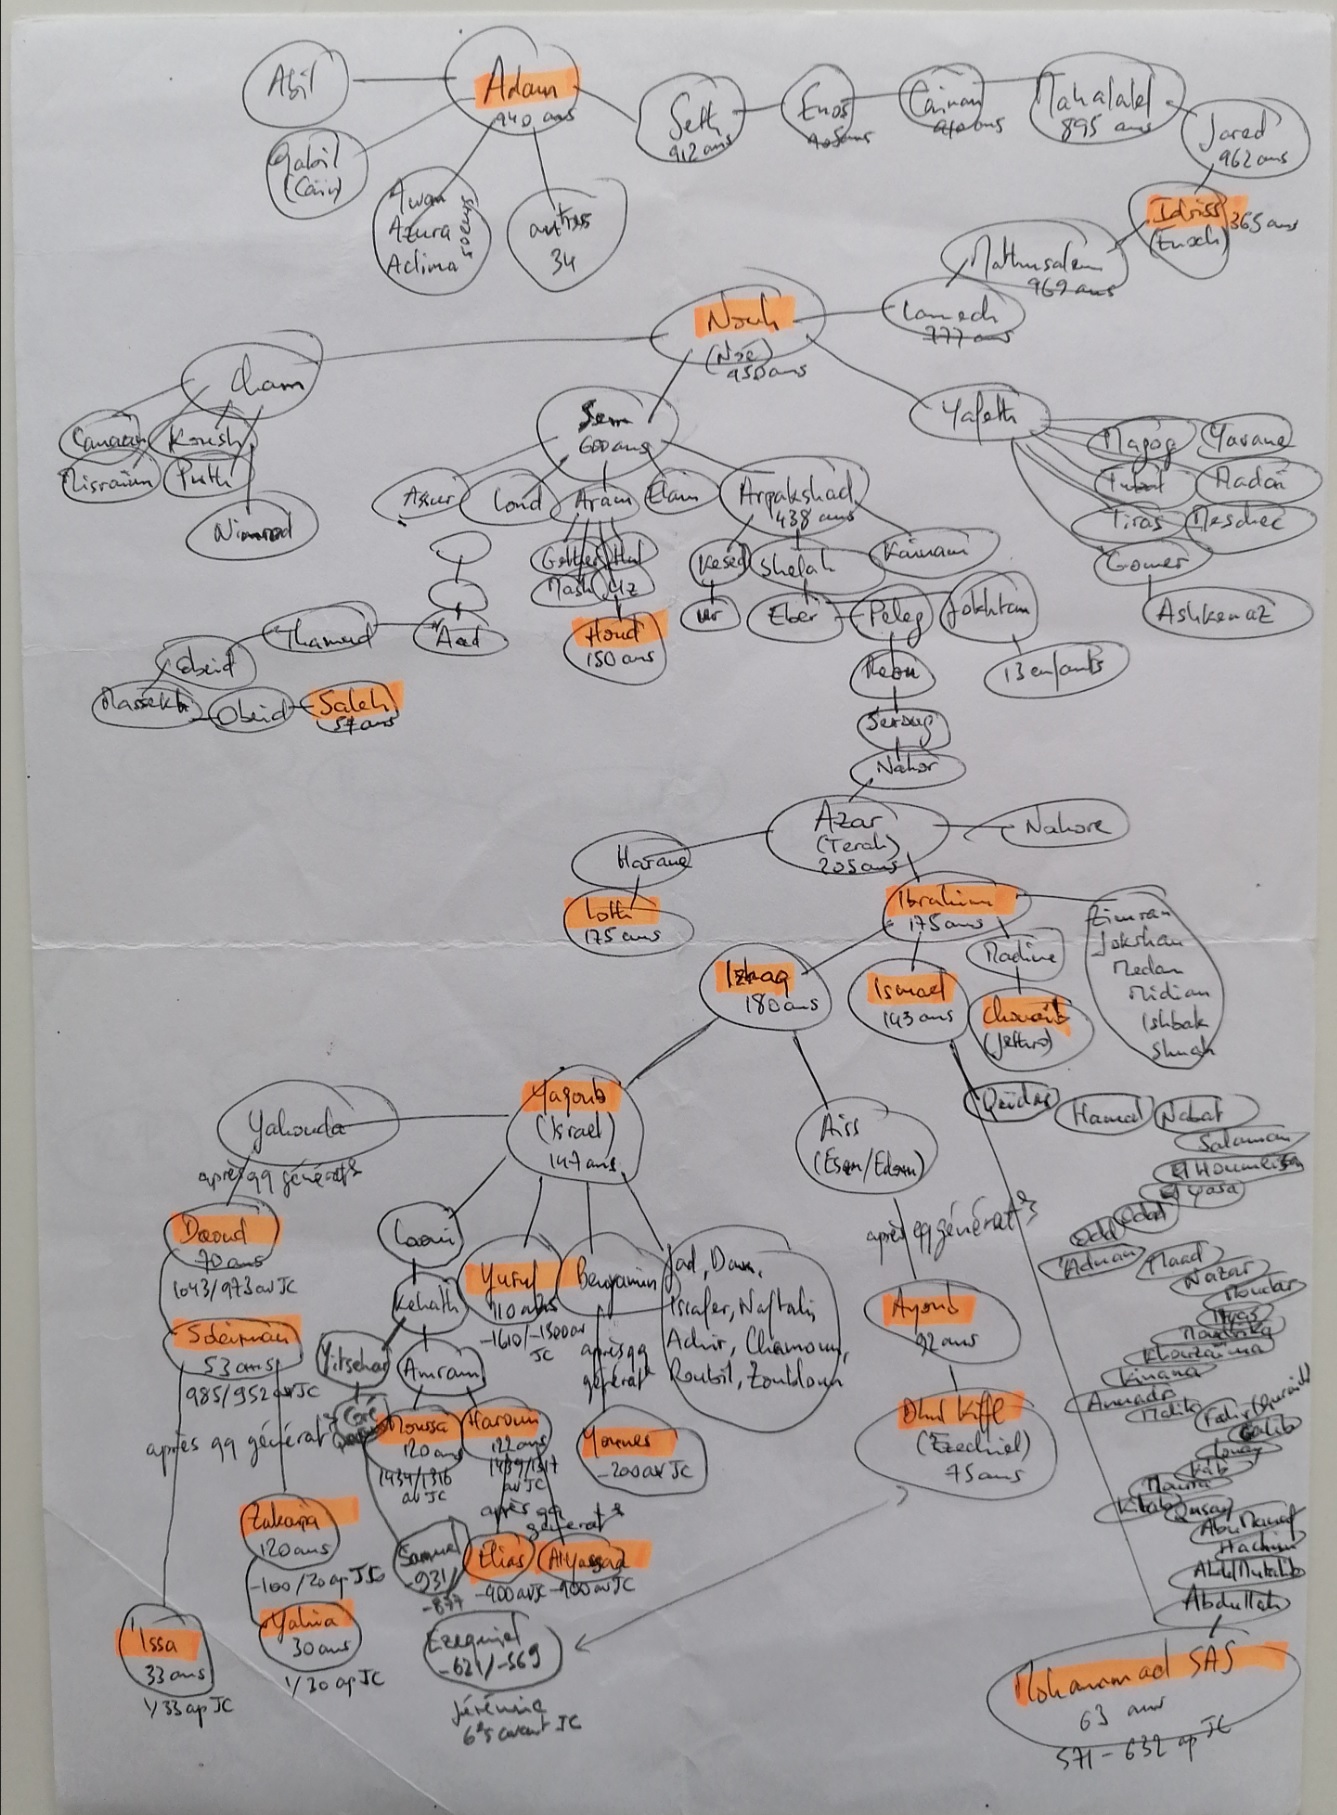 Abil
Adam
940 ans
Qabil
(Cain)
Awan
Azura
Aclima
soeurs
autres
34
Seth
912 ans
Enos
905 ans
Cainan
910 ans
Mahalalel
895 ans
Jared
962 ans
Idriss
365 ans
(Enoch)
Mathusalem
969 ans
Lamech
777 ans
Nouh
(Noé)
950 ans
Cham
Canaan
Koush
Misraim
Puth
Nimrod
Sem
600 ans
Assur
Loud
Aram
Elam
Arpakshad
438 ans
Gether
Hul
Mash
Uz
Houd
150 ans
Kesed
Shelah
Kainam
Ur
Eber
Peleg
Jokhtan
13 enfants
Yafeth
Magog
Yavane
Tubal
Madai
Tiras
Meschec
Gomer
Ashkenaz
Aad
Thamud
Obeid
Massekh
Obeid
Saleh
57 ans
Reou
Seroug
Nahor
Azar
(Terah)
205 ans
Nahore
Harane
Loth
175 ans
Ibrahim
175 ans
Zimran
Jokshan
Medan
Midian
Ishbak
Shuah
Madine
Chouaib
(Jethro)
Ismael
143 ans
Izhaq
180 ans
Yaqoub
(Israel)
147 ans
Yahouda
après qq générat°s
Daoud
70 ans
1043/973 av JC
Soleiman
53 ans
985/952 av JC
après qq générat°s
Zakaria
120 ans
-100/20 ap JC
Yahia
30 ans
1/30 ap JC
Issa
33 ans
1/33 ap JC
Laoui
Kehath
Yitsehar
Amram
Coré
Moussa
120 ans
1434/1316
av JC
Haroun
122 ans
1439/1317
av JC
après qq
générat°s
Samuel
-931/
-877
Elias
-900 av JC
Al Yassaa
-900 av JC
Ezequiel
-621/-569
Jérémie
6°s avant JC
Yusuf
110 ans
-1610/-1500 av
JC
Benyamin
après qq
générat°
Younes
-200 av JC
Jad, Dan,
Issafer, Naftali
Achir, Chamoun,
Roubil, Zoubloun
Aiss
(Esau/Edom)
après qq générat°s
Ayoub
92 ans
Dhul Kifl
(Ezechiel)
75 ans
Qeidar
Hamal
Nabat
Salaman
Al Yasa
Odad
Odd
Adnan
Maad
Nazar
Moudar
Ilyas
Moudrika
Khouzaima
Kinana
Malik
Galib
Kab
Mourra
Kilab
Qusay
Abu Manaf
Hachim
Abdel Mutalib
Abdullah
Mohammad SAS
63 ans
571 - 632 ap JC